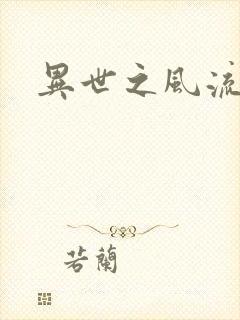 異世之風流
若蘭